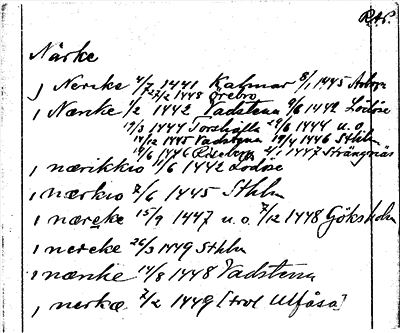 R.A.P.
Närke
j Nericke 4/7 1441 Kalmar 8/1 1445 Arboga
27/2 1448 Örebro
, Nærike 1/2 1442 Vadstena 9/6 1442 Lödöse
19/3 1444 Torshälla 29/6 1444 u.o.
14/12 1445 Vadstena 19/4 1446 Sthlm
1446 Riseberga 4/1 1447 Strängnäs
, nærikkio 9/6 1442 Lödöse
, nærkio 2/6 1445 Sthlm
, næreke 15/9 1447 u.o. 7/12 1448 Göksholm
, nereke 26/3 1449 Sthlm
, nærike 14/8 1448 Vadstena
, nerkæ 7/2 1449 [trol Ulfåsa]